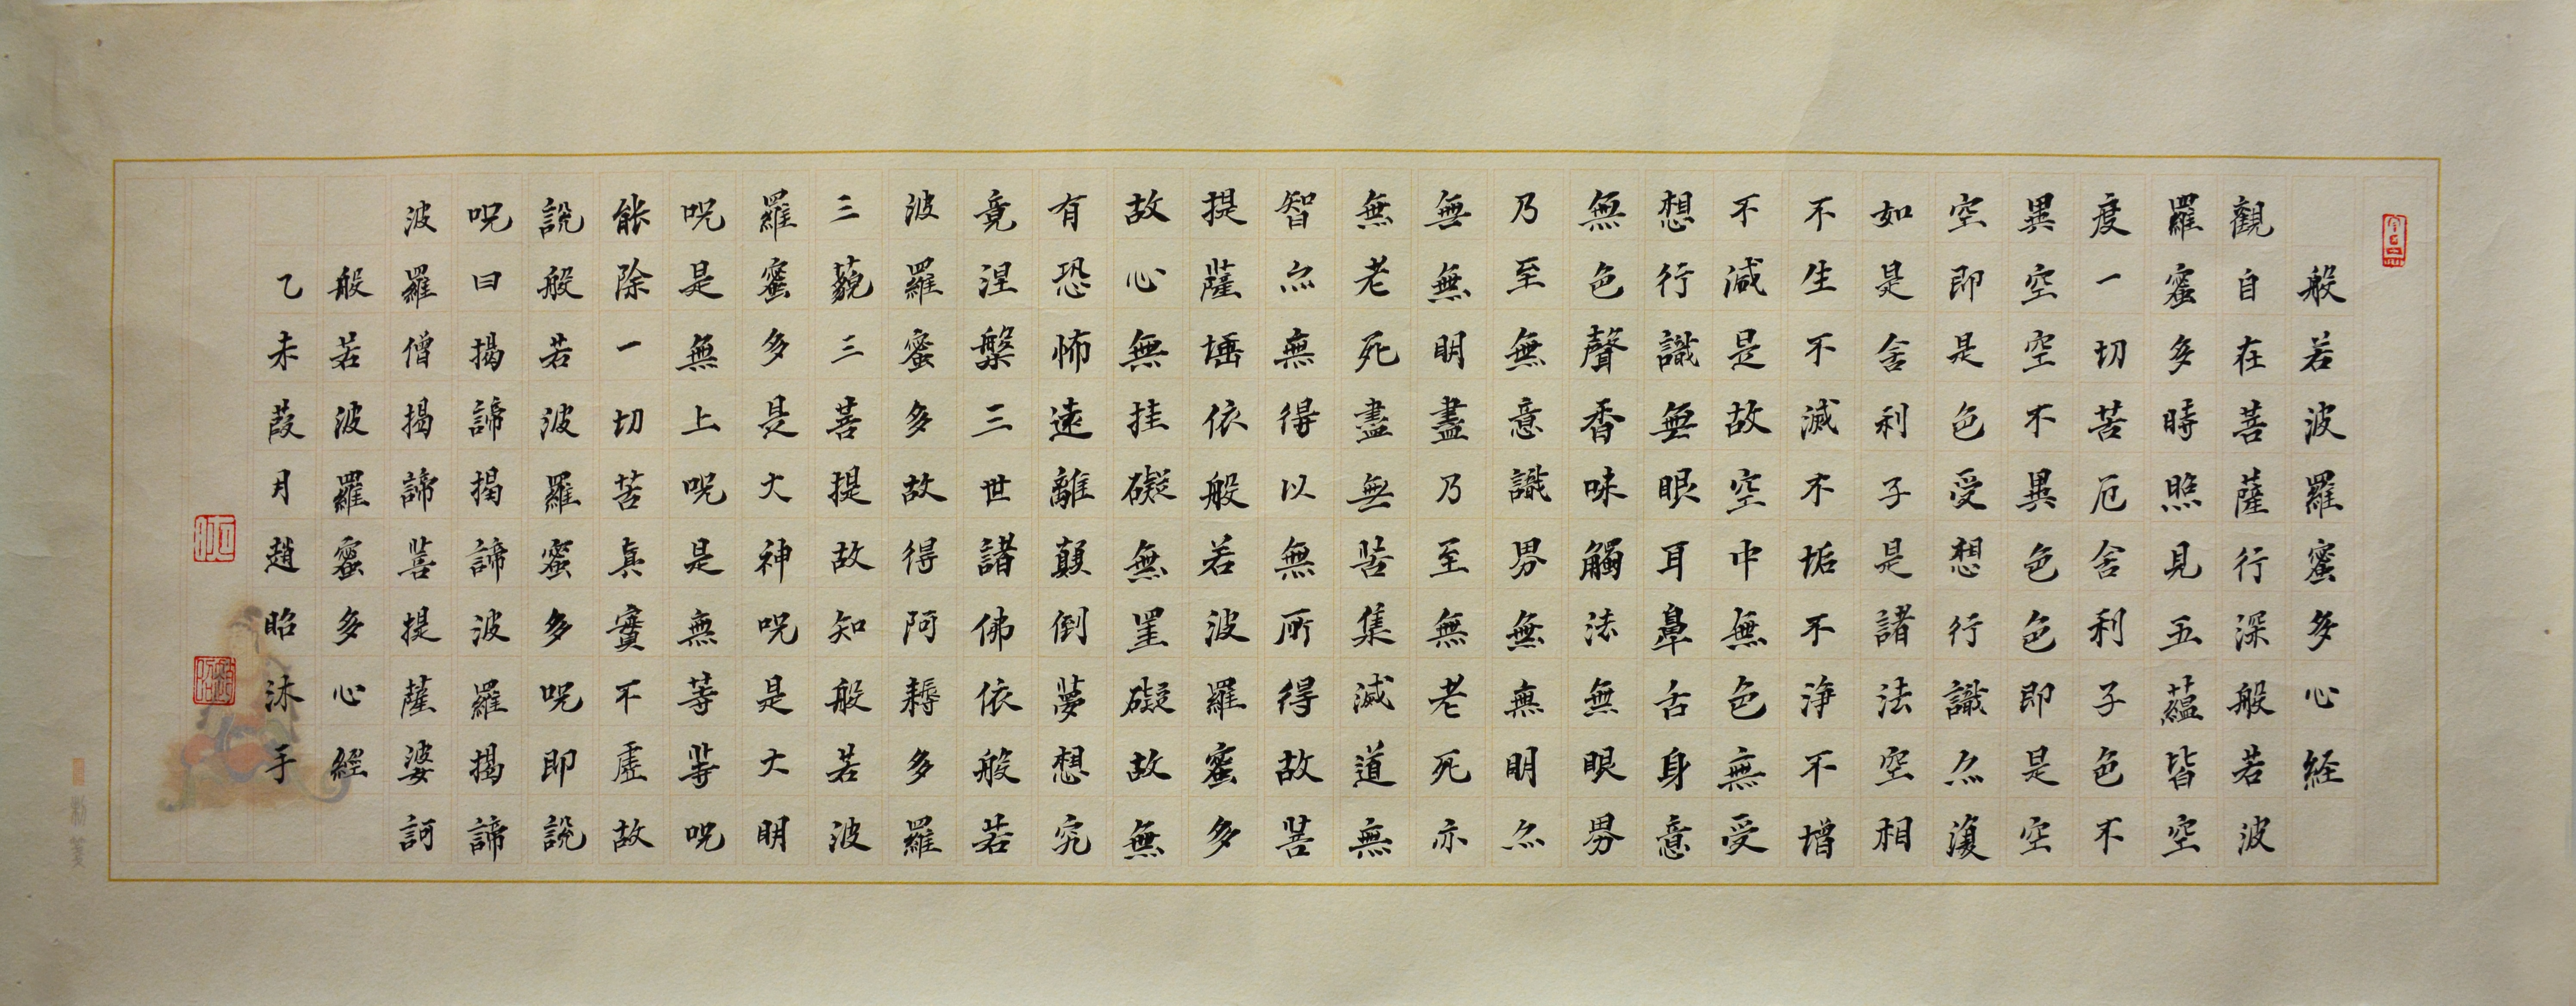 般若波羅蜜多心経
觀自在菩薩行深般若波
羅蜜多時照見五蘊皆空
度一切苦厄舍利子色不
異空空不異色色即是空
空即是色受想行識亦復
如是舍利子是諸法空相
不生不滅不垢不淨不增
不減是故空中無色無受
想行識無眼耳鼻舌身意
無色聲香味觸法無眼界
乃至無意識界無無明亦
無無明盡乃至無老死亦
無老死盡無苦集滅道無
智亦無得以無所得故菩
提薩埵依般若波羅蜜多
故心無挂礙無罣礙故無
有恐怖遠離顛倒夢想究
竟涅槃三世諸佛依般若
波羅蜜多故得阿耨多羅
三藐三菩提故知般若波
羅蜜多是大神呪是大明
呪是無上呪是無等等呪
能除一切苦真實不虛故
說般若波羅蜜多呪即說
呪曰揭諦揭諦波羅揭諦
波羅僧揭諦菩提薩婆訶
般若波羅蜜多心經
乙未葭月趙昭沐手